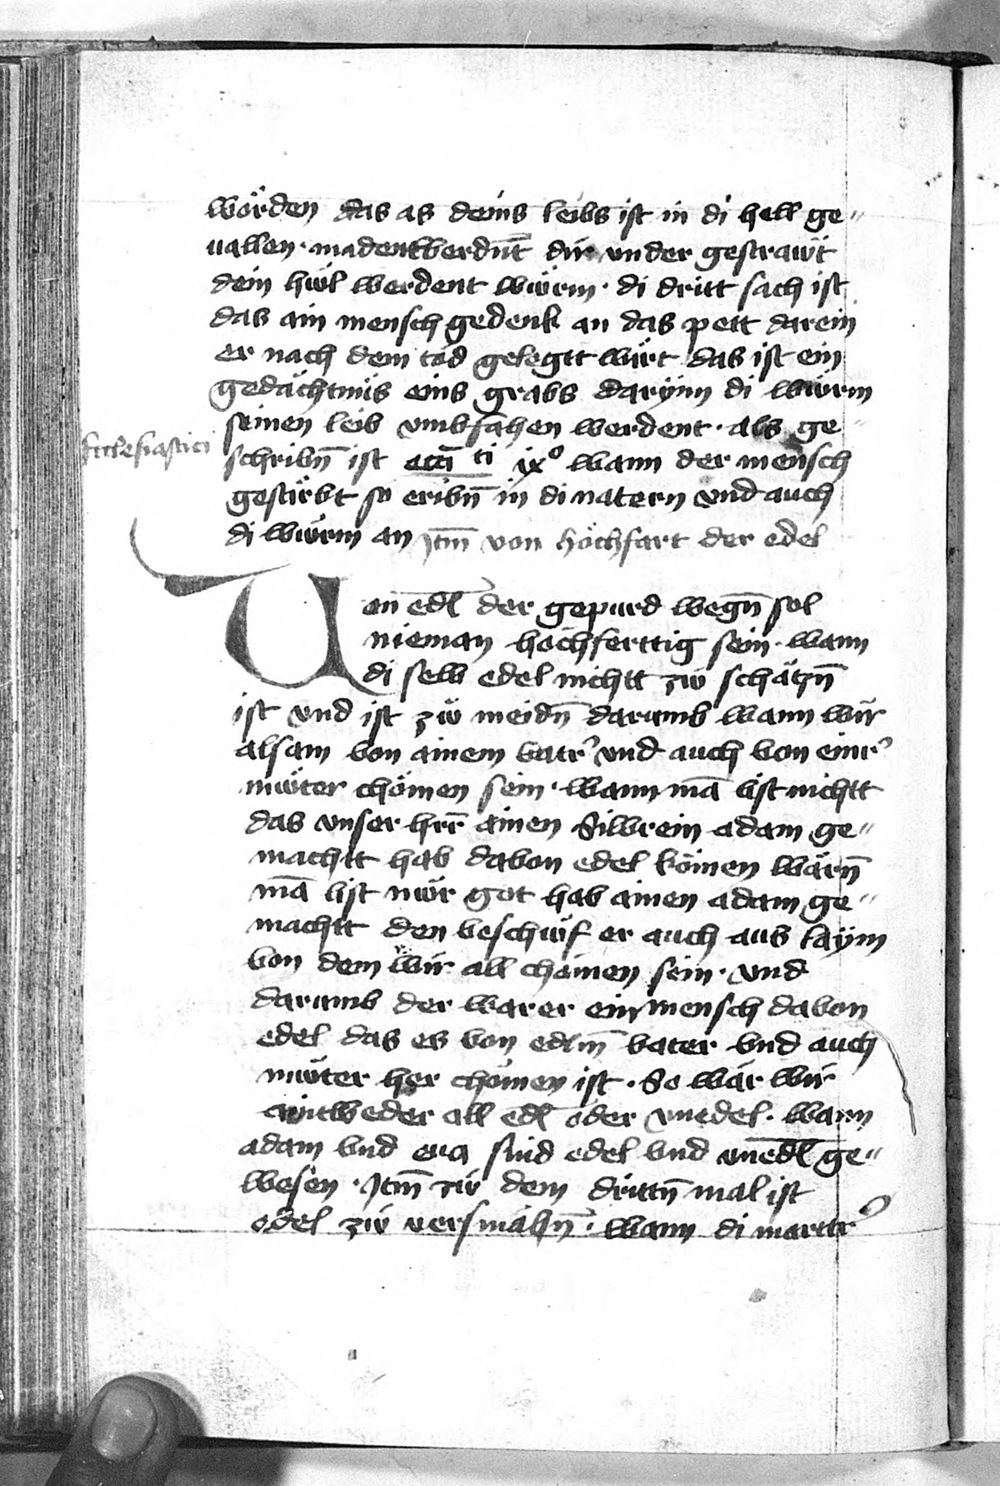 wörden das as deins leibs ist in di hell ge〃
uallen · madentberdnt̄ dir vnder gestrawt
dein hül werdent würm · di dritt sach ist
das ain mensch gedenk an das pett darein
er nach dem tod gelegtt wirt das ist ein
gedächtnüs eins grabs darÿnn di würm
seinen leib vmbfahen werdent · als ge
Ecclesiastici
schribn̄ ist ecci ti ix° wann der mensch
gestirbt so eribn̄ in di natern vnd auch
di würm an Jtm̄ von höchfart der edel
Uon edl̄ der gepurd wegn̄ sol
nieman hochferttig sein · wann
di selb edel nichtt zü schätzn̄
ist vnd ist zü meidn̄ darumb wann wir
alsam von ainem vatr̄ vnd auch von einr̄
müter chömen sein · wann mā list nichtt
das vnser hrr̄ ainen Silbrein adam ge〃
machtt hab dabon edel kömen wärn̄
mā list nür got hab ainen adam ge〃
machtt den beschüf er auch aus laÿm
von dem wir all chömen sein · vnd
darumb der war er ein mensch davon
edel das es von edlm̄ vater vnd auch
müter her chömen ist · So wär wir
aintweder all edl̄ oder vnedel · wann
adam vnd eua sind edel vnd vnedl̄ ge〃
wesen · Jtm̄ zü dem drittn̄ mal ist
edel zü versmähn̄ · wann di martr̄